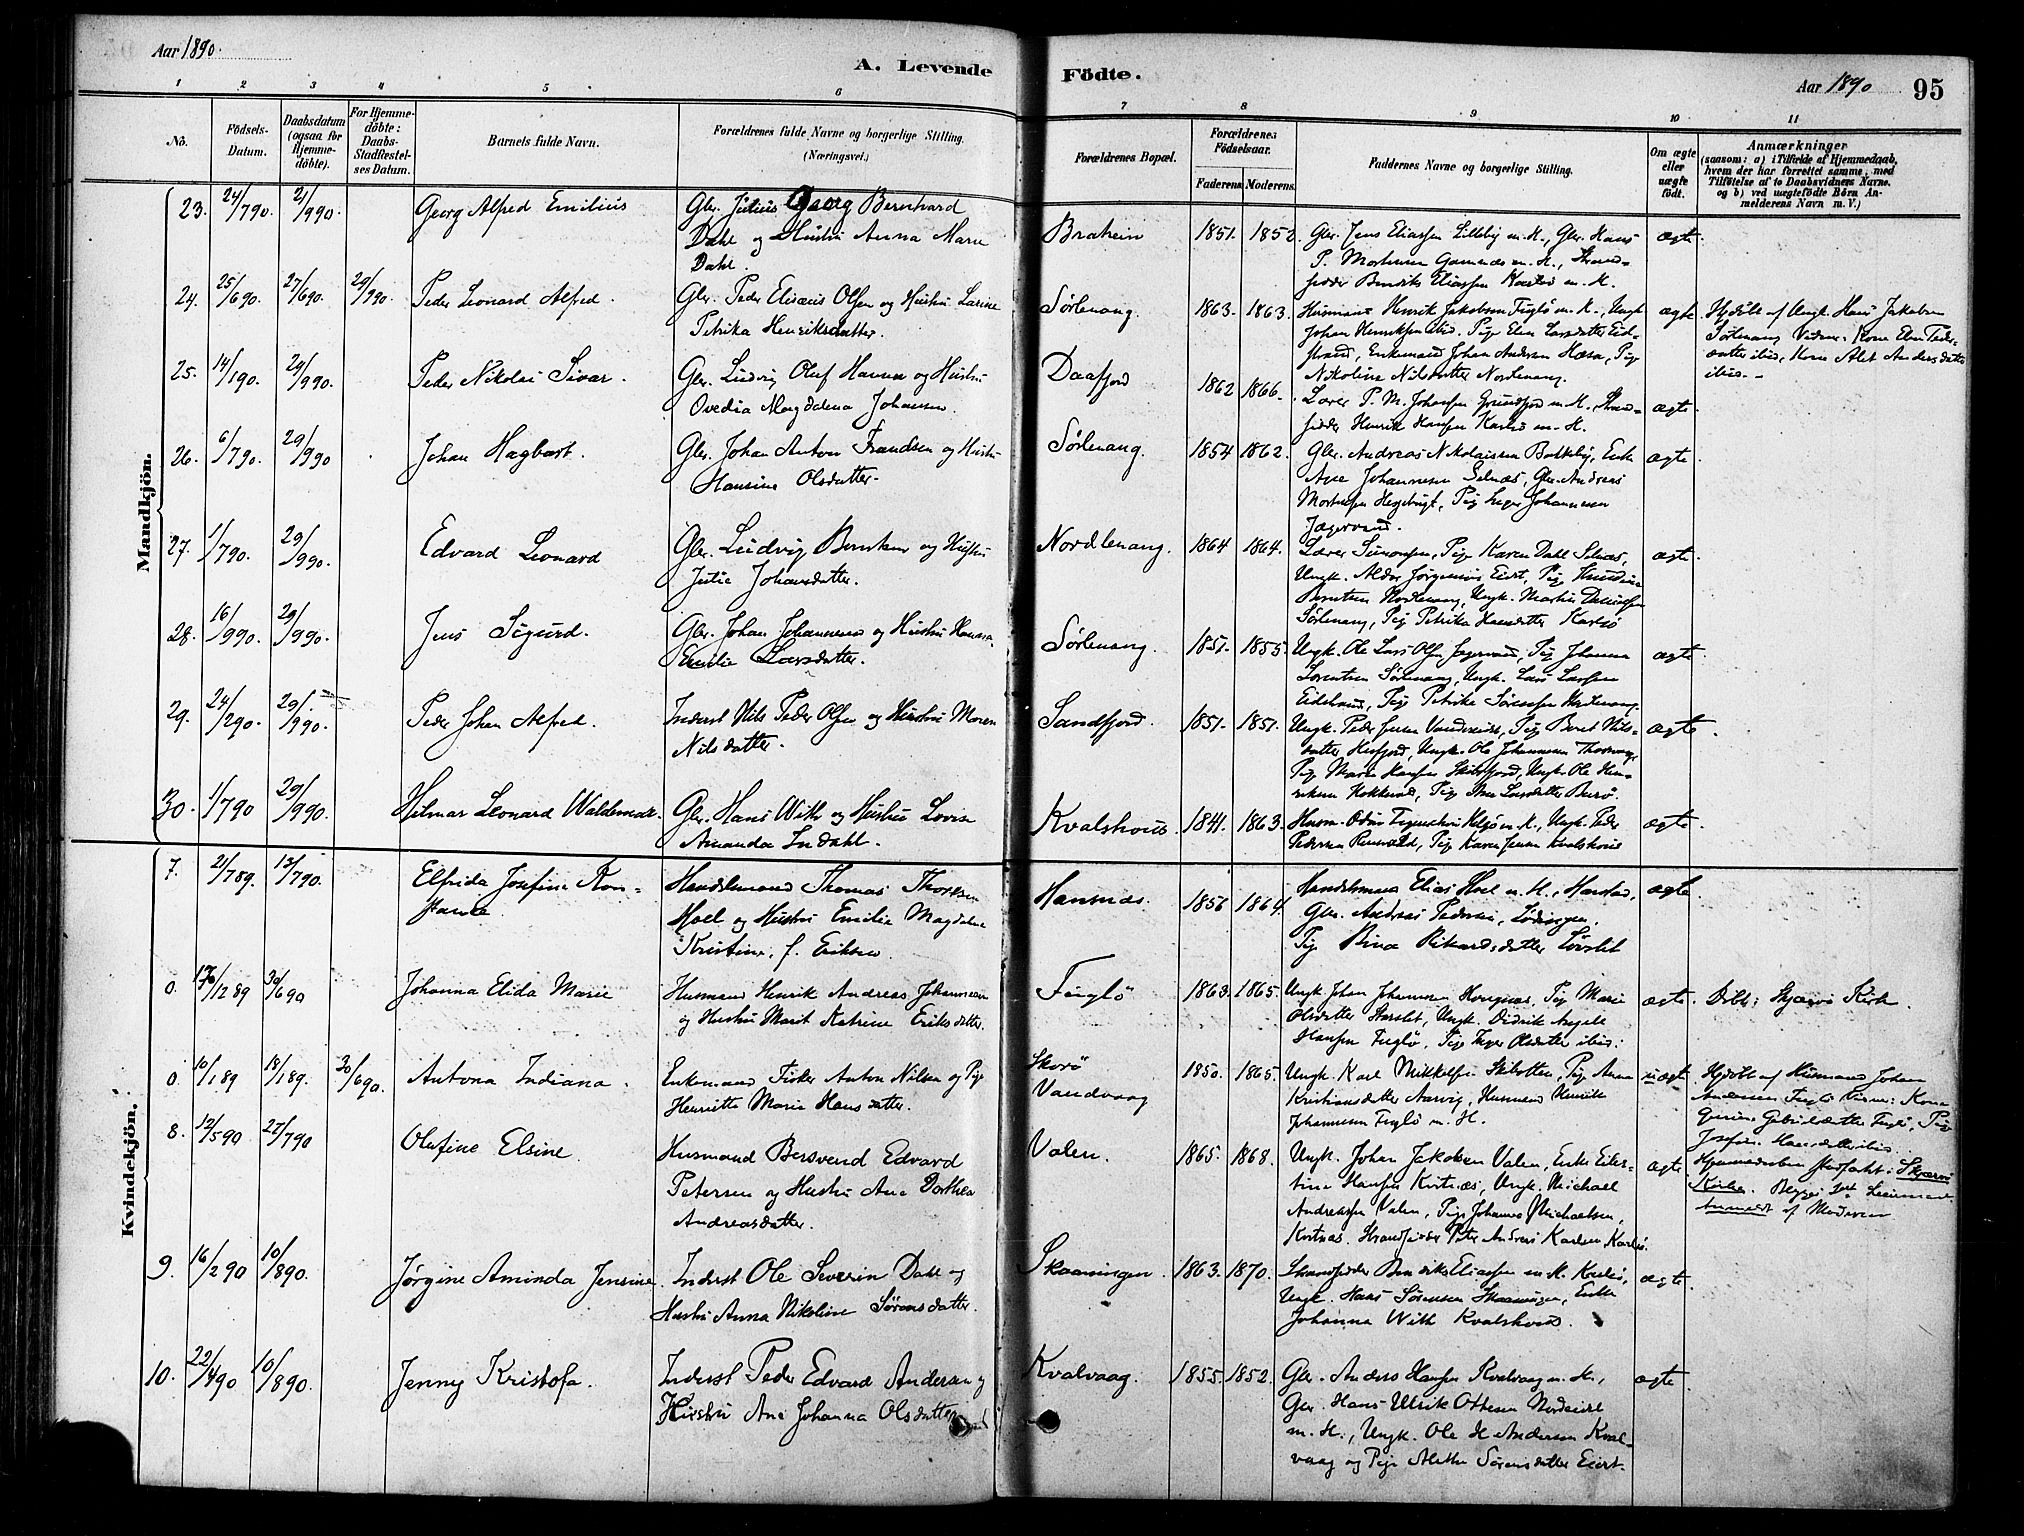 Aar 1890.
A. Levende
Födte.
Aar 1890
95
1 2 3 4 5 6
7 8 9 10 11
No.
Födsels-
Datum.
Daabsdatum
(ogsaa for
Hjemme-
döbte).
For Hjemme-
döbte:
Daabs-
Stadfæstel-
ses Datum.
Barnets fulde Navn.
Forældrenes fulde Navne og borgerlige Stilling.
(Næringsvei.)
Forældrenes Bopæl.
Forældrenes
Födselsaar.
Faderens. Moderens.
Faddernes Navne og borgerlige Stilling.
Om ægte
eller
uægte
födt.
Anmærkninger
(saasom: a) i Tilfælde af Hjemmedaab,
hvem der har forrettet samme, med
Tilföielse af to Daabsvidners Navne,
og b) ved uægtefödte Börn An-
melderens Navn m. V.)
Mandkjön.
23. 24/790. 21/990. Georg Alfred Emilius Gbr. Julius Georg Bernhard
Dahl og Hustru Anna Marie
Dahl.
Braheim 1851. 1852. Gbr. Jens Eliassen Lilleby m. H., Gbr. Hans ægte
P. Mortensen Gamnæs m. H., Strand-
sidder Bendiks Eliassen Karlsö m. H.
24. 25/690. 27/690. 29/990. Peder Leonard Alfred. Gbr. Peder Elisæus Olsen og Hustru Larine
Petrika Henriksdatter.
Sørlenang. 1863. 1863. Husmand Henrik Jakobsen Fuglö m. K., Ungk. ægte Hjdöbt af Ungk. Hans Jakobsen
Johan Henriksen ibid. Pige Elen Larsdatter Eid-
strand, Enkemand Johan Andersen Hæsa, Pige
Nikoline Nilsdatter Nordlenang.
Sørlenang. Vidner: Kone Elen Peder-
datter ibid., Kone Alet Andersdatter
ibid.
25. 14/190. 29/990. Peder Nikolai Sivar. Gbr. Ludvig Oluf Hansen og Hustru
Ovedia Magdalena Johansen.
Daafjord 1862 1866. Lærer P. M. Johansen Grundfjord m. H., Strand- ægte.
sidder Henrik Hansen Karlsö m. H.
26. 6/790. 29/990 Johan Hagbart. Gbr. Johan Anton Frandsen og Hustru
Hansine Olsdatter.
Sørlenang. 1854 1862. Gbr. Andreas Nikolaisen Bakkeby, Enke ægte.
Ane Johannesen Selnæs, Gbr. Andreas
Mortensen Hessbugt, Pige Inger Johannesen
Jægervand.
27. 1/790. 29/990. Edvard Leonard Gbr. Ludvig Berntsen og Hustru
Julie Johansdatter.
Nordlenang. 1864 1864. Lærer Simonsen, Pige Karen Dahl Selnæs, ægte.
Ungk. Aldor Jørgensen Eidet, Pige
Berntsen Nordlenang, Ungk. Martin
Sørlenang, Pige Petrika Hansdatter Karlsö
28. 16/990. 29/990. Jens Sigurd. Gbr. Johan Johannesen og Hustru
Emilie Larsdatter.
Sørlenang. 1851. 1855. Ungk. Ole Lars Olsen Jægervand, Pige Johanna ægte.
Lorentsen Sørlenang, Ungk. Lars Larsen
Eidstrand, Pige Petrike Sørensen Nordlenang.
29. 24/290. 29/990. Peder Johan Alfred. Inderst Nils Peder Olsen og Hustru Maren
Nilsdatter.
Sandfjord. 1851. 1851. Ungk. Peder Jensen Vandereidet, Pige Beret Nils- ægte.
datter Kisfjord, Ungk. Ole Johannesen
Pige Marie Hansen Skibsfjord, Ungk. Ole Hen-
riksen Pige Larsdatter
30. 1/790 29/990. Hilmar Leonard Waldemar. Gbr. Hans With og Hustru Lovise
Amanda Indahl.
Kvalshous. 1841. 1863. Husm. Odin Figenschou Helgö m. K., Ungk. Peder ægte.
Pedersen Pige Karen Jensen Kvalshous
Kvindekjön.
7. 21/789. 13/790. Elfrida Josefine Kon-
stance
Handelsmand Thomas Thoresen
Hoel og Hustru Emilie Magdalene
Kristine, f. Eriksen.
Hansnæs. 1856 1864. Handelsmand Elias Hoel m. H., Harstad, ægte.
Gbr. Andreas Pedersen, Lödingen,
Pige Bina Rikardsdatter Sörslet
0. 17/1289 30/690 Johanna Elida Marie Husmand Henrik Andreas Johannesen
og Hustru Marit Katrine Eriksdatter.
Fuglö 1863. 1865. Ungk. Johan Johannesen Hougnæs, Pige Marie ægte. Döbt i Skjærvö Kirke.
Olsdatter Karslet, Ungk. Didrik Angell
Hansen Fuglö, Pige Inger Olsdatter ibid.
0. 10/189 18/189. 30/690. Antona Indiana. Enkemand Fisker Anton Nilsen og Pige
Henriette Marie Hansdatter.
Skorö
Vandvaag
1850. 1865. Ungk. Karl Mikkelsen Skibotten, Pige Anna uægte Hjdöbt af Husmand Johan
Kristiansdatter Aarvig, Husmand Henrik
Johannesen Fuglö m. H.
Andersen Fuglö. Vidner: Kone
Gabrielsdatter Fuglö, Pige
Josefine Hansdatter ibid.
Hjemmedaaben stadfæstet i Skjærvö
Kirke.
Anmeldt af Moderen
8. 12/590 27/790 Olufine Elsine. Husmand Bersvend Edvard
Petersen og Hustru Ane Dorthea
Andreasdatter.
Valen. 1865. 1868. Ungk. Johan Jakobsen Valen, Enke Eiler- ægte
tine Hansen Kvitnæs, Ungk. Michael
Andreassen Valen, Pige Johanna Michaelsen,
Kvitnæs. Strandsidder Peter Andreas Karlsen, Karlsö.
9. 16/290 10/890. Jørgine Aminda Jensine. Inderst Ole Severin Dahl og
Hustru Anna Nikoline Sørensdatter.
Skaaningen. 1863. 1870. Strandsidder Bendiks Eliassen m. H. Karlsö, ægte.
Ungk. Hans Sørensen Skaaningen, Enke
Johanna With Kvalshous.
10. 22/490 10/890. Jenny Kristofa. Inderst Peder Edvard Andersen og
Hustru Ane Johanna Olsdatter
Kvalvaag. 1855. 1852. Gbr. Anders Hansen Kvalvaag m. H., ægte.
Gbr. Hans Ulrik Ottesen Nordeidet
m. H., Ungk. Ole H Andersen Kval-
vaag og Pige Alethe Sørensdatter Eidet.